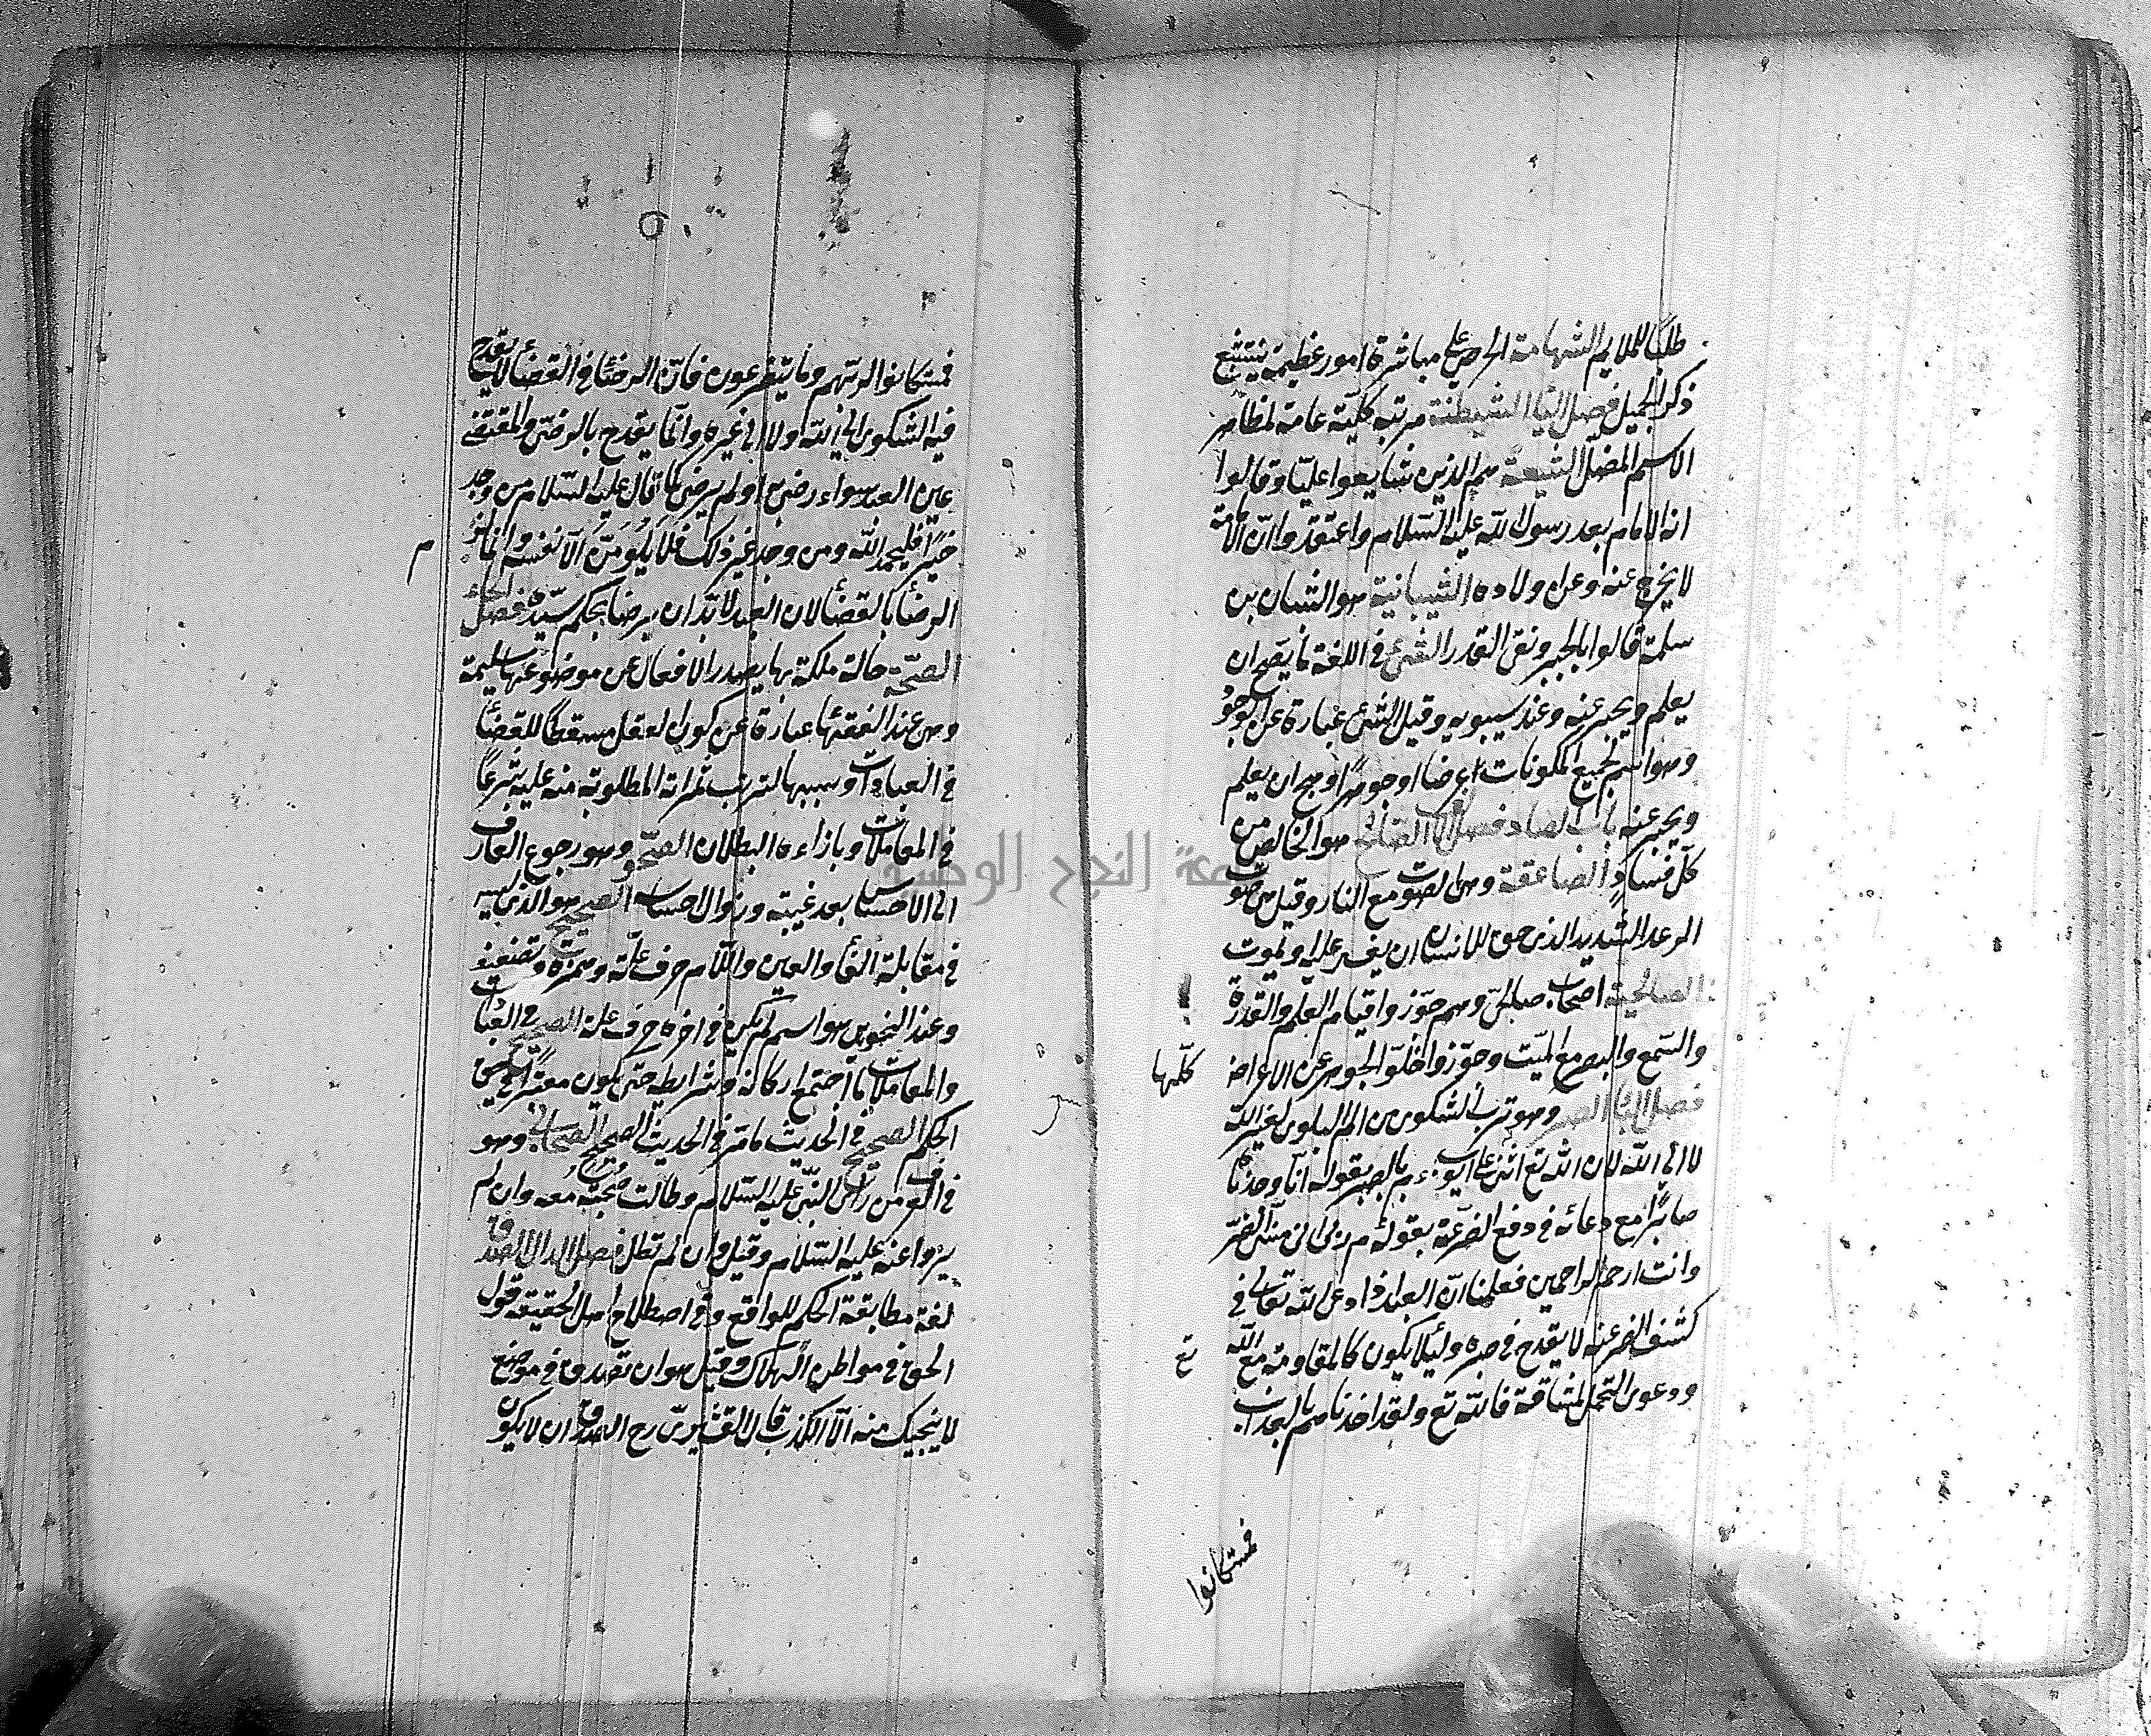 طلبًا للملايم الشهامة الحرص على مباشرة امور عظيمة يستتبع
ذكر الجميل فصل اليا الشيطنة مرتبة كلّية عامة لمظاهر
الاسم المضلّ الشيعة هم الذين شايعوا عليّا وقالوا
انه الامام بعد رسول الله عليه السّلام واعتقدوا انّ الامامة
لا يخرج عنه وعن اولاده الشيبانية هو الشبان بن
سلمة قالوا بالجبر ونفى القدر الشئ فى اللغة ما يصح ان
يعلم ويخبر عنه وعند سيبويه وقيل الشئ عبارة عن الوجود
وهو اسم لجميع المكونات عرضا او جوهرًا وصح ان يعلم
ويخبر عنه باب الصاد فصل الالف الصالح هو الخالص من
كلّ فساد الصاعقة وهى الصوت مع النار وقيل هى صوت
الرعد الشديد الذى حق للانسان ان يغشى عليه او يموت
الصالحية اصحاب صالحى وهم جوّزوا قيام العلم والقدرة
والسّمع والبصر مع الميّت وجوّزوا خلوّ الجوهر عن الاعراض كلّها
فصل البا الصبر وهو ترك الشكوى من الم البلوى لغير الله
لا الى الله لان الله تع اثنى على ايوب بالصبر بقوله انّا وجدناه
صابرًا مع دعائه فى دفع الضر عنه بقوله ربى انى مسّنى الضرّ
وانت ارحم الراحمين فعلمنا انّ العبد اذا دعى الله تعالى فى
كشف الضر عنه لا يقدح فى صبره ولئلا يكون كالمقاومة مع الله تع
ودعوى التحمل لمشاقه قال الله تع ولقد اخذناهم بالعذاب
فمستكانوا
فمستكانوا لربّهم وما يتضرعون فانّ الرضا فى القضا لا يقدح
فيه الشكوى الى الله ولا الى غيره وانّما يقدح بالرضى والمقتضى
عين العبد سواء رضى به او لم يرض كما قال عليه السّلام من وجد
خيرًا فليحمد الله ومن وجد غير ذلك فلا يلومنّ الّا نفسه وانما لزم
الرضا بالقضا لان العبد لا بدّ ان يرضا بحكم سيّده فصل الحاء
الصحّة حالة ملكة بها يصدر الافعال عن موضوعها سليمة
وهى عند الفقهاء عبارة عن كون الفعل مسقطًا للقضاء
فى العبادات وسببها لترتب ثمراته المطلوبة منه عليه شرعًا
فى المعاملات وبازاءه البطلان الصحو وهو رجوع العارف
الى الاحساس بعد غيبته وزوال احساسه الصحيح هو الذى ليس
فى مقابلة الفاء والعين واللّام حرف علّة وهمزة وتضعيف
وعند النحويين هو اسم لم يكن فى اخره حرف علة الصحيح فى العبادات
والمعاملات ما اجتمع اركانه وشرايطه حتى يكون معتبرًا فى حق
الحكم الصحيح فى الحديث ما مر فى الحديث الصحيح الصحابى وهو
فى العرف من رأى النبّى عليه السّلام وطالت صحبته معه وان لم
يروا عنه عليه السّلام وقيل وان لم تطل فصل الدال الصدق
لغة مطابقة الحكم للواقع وفى اصطلاح اهل الحقيقة قول
الحق فى مواطن الهلاك وقيل هو ان تصدق فى موضع
لا ينجيك منه الّا الكذب قال القشيرىّ رح الصدق ان لا يكون